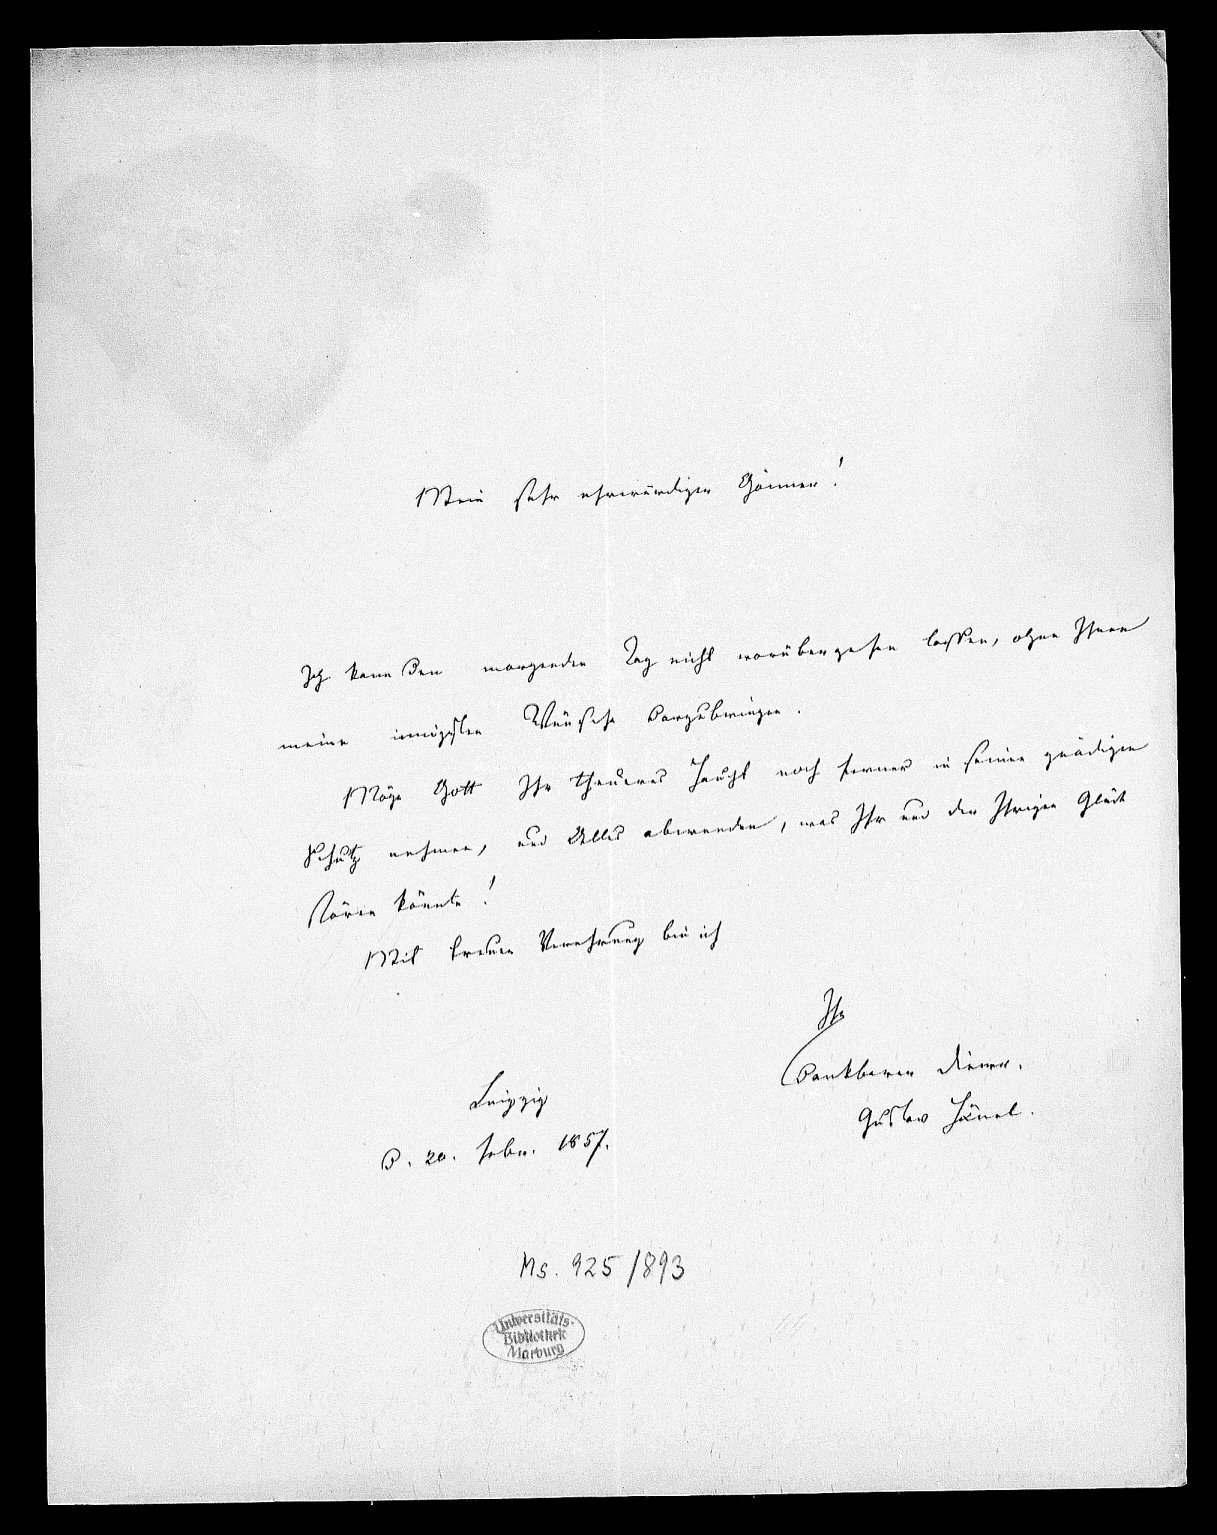 Mein sehr ehrwürdiger Gönner!
Ich kann den morgenden Tag nicht vorübergehen lassen, ohne Ihnen
meine innigsten Wünsche darzubringen.
Möge Gott Ihr theueres Haupt noch ferner in seinen gnädigen
Schutz nehmen, und Alles abwenden, was Ihr und der Ihrigen Glück
stören könnte!
Mit treuer Verehrung bin ich
Ihr
dankbarer Diener.
Gustav Hänel.
Leipzig
d. 20. Febr. 1857.
Ms. 925/893
Universitäts-
Bibliothek
Marburg